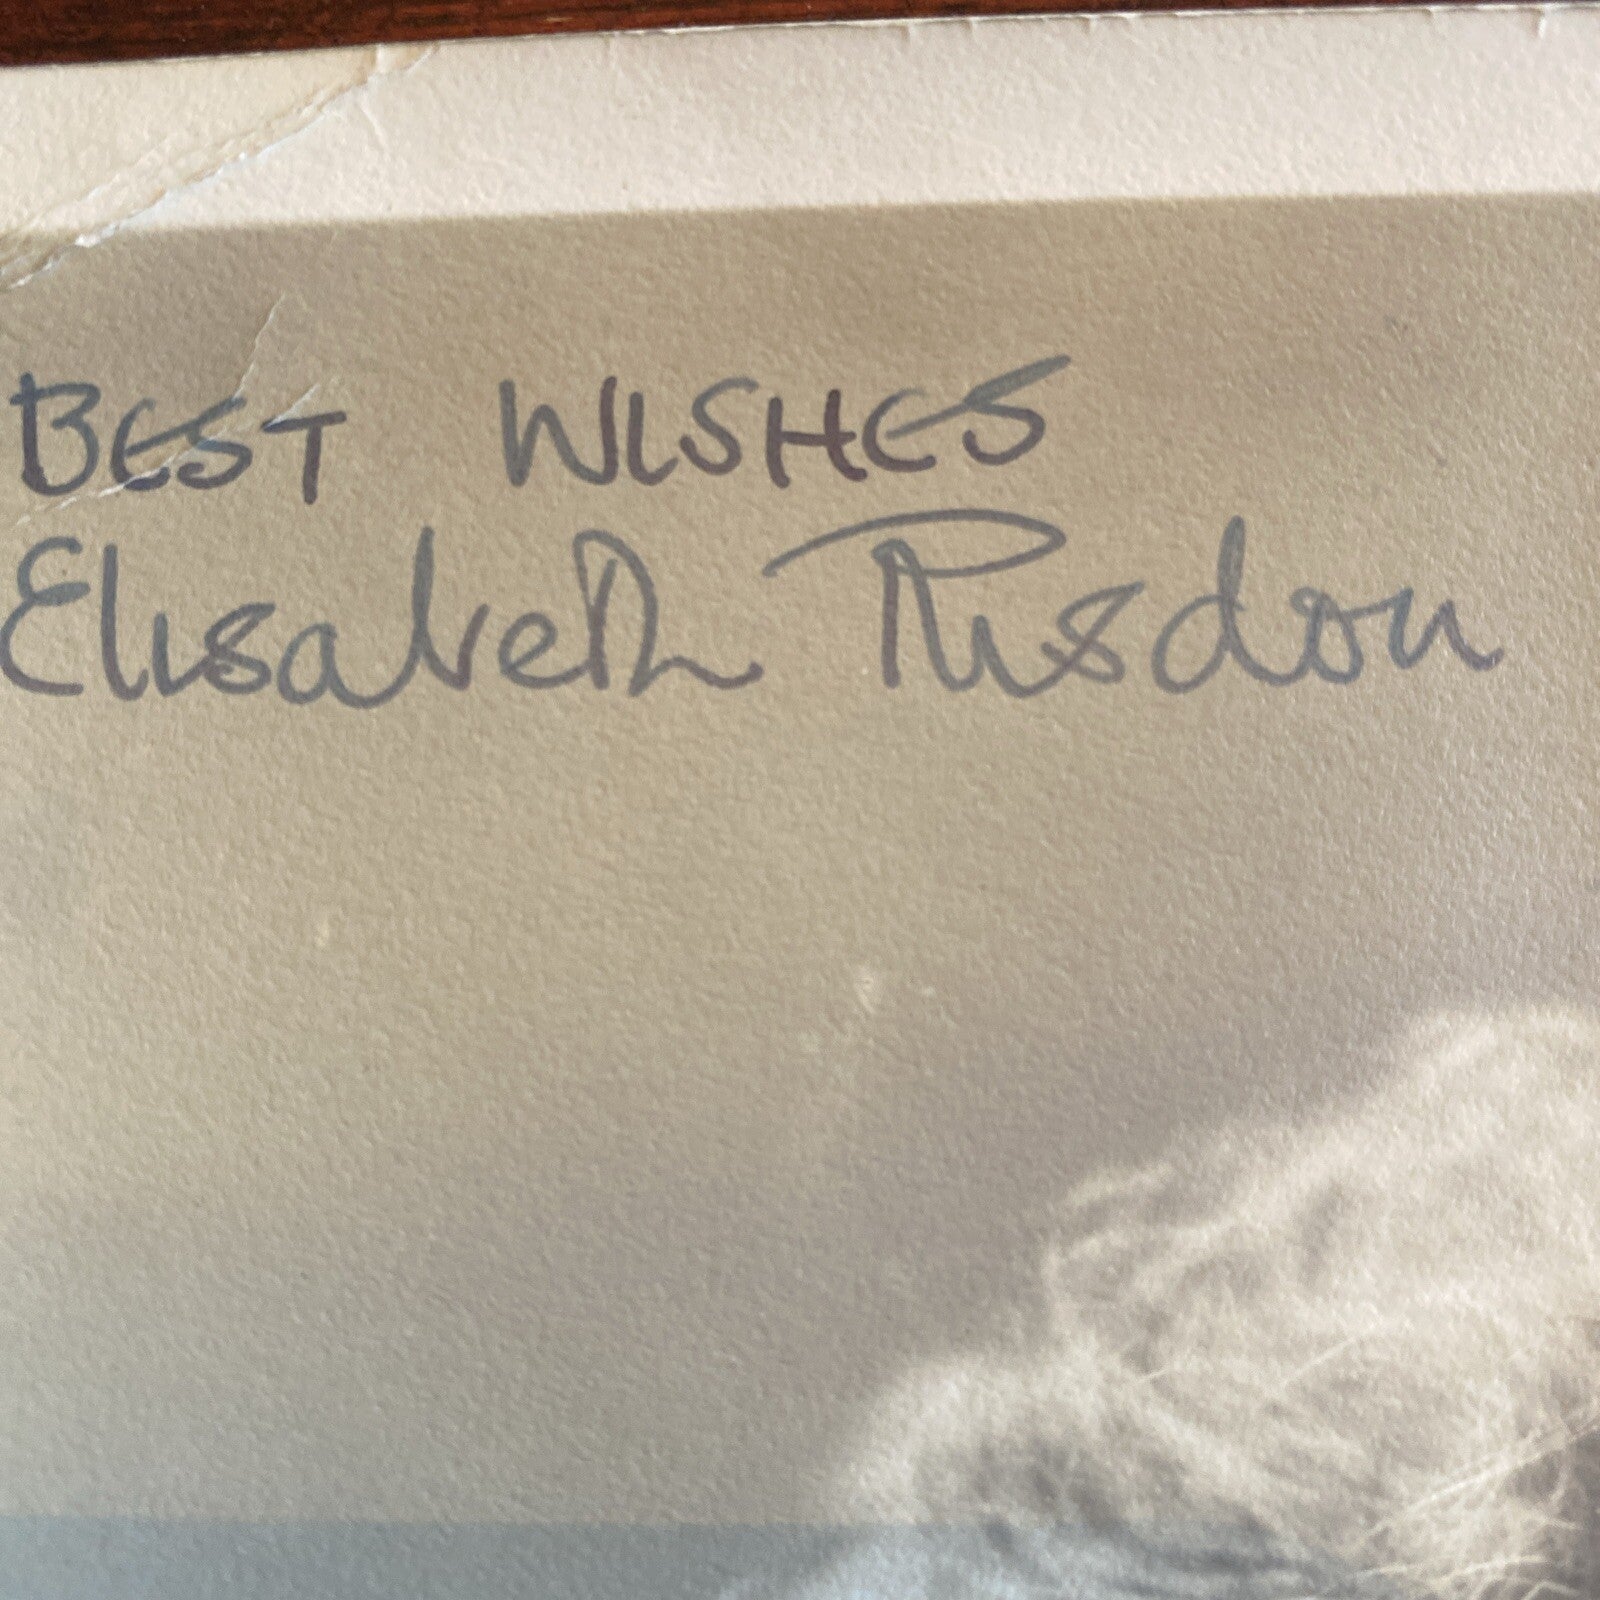 BEST WISHES
Elisabeth Risdon